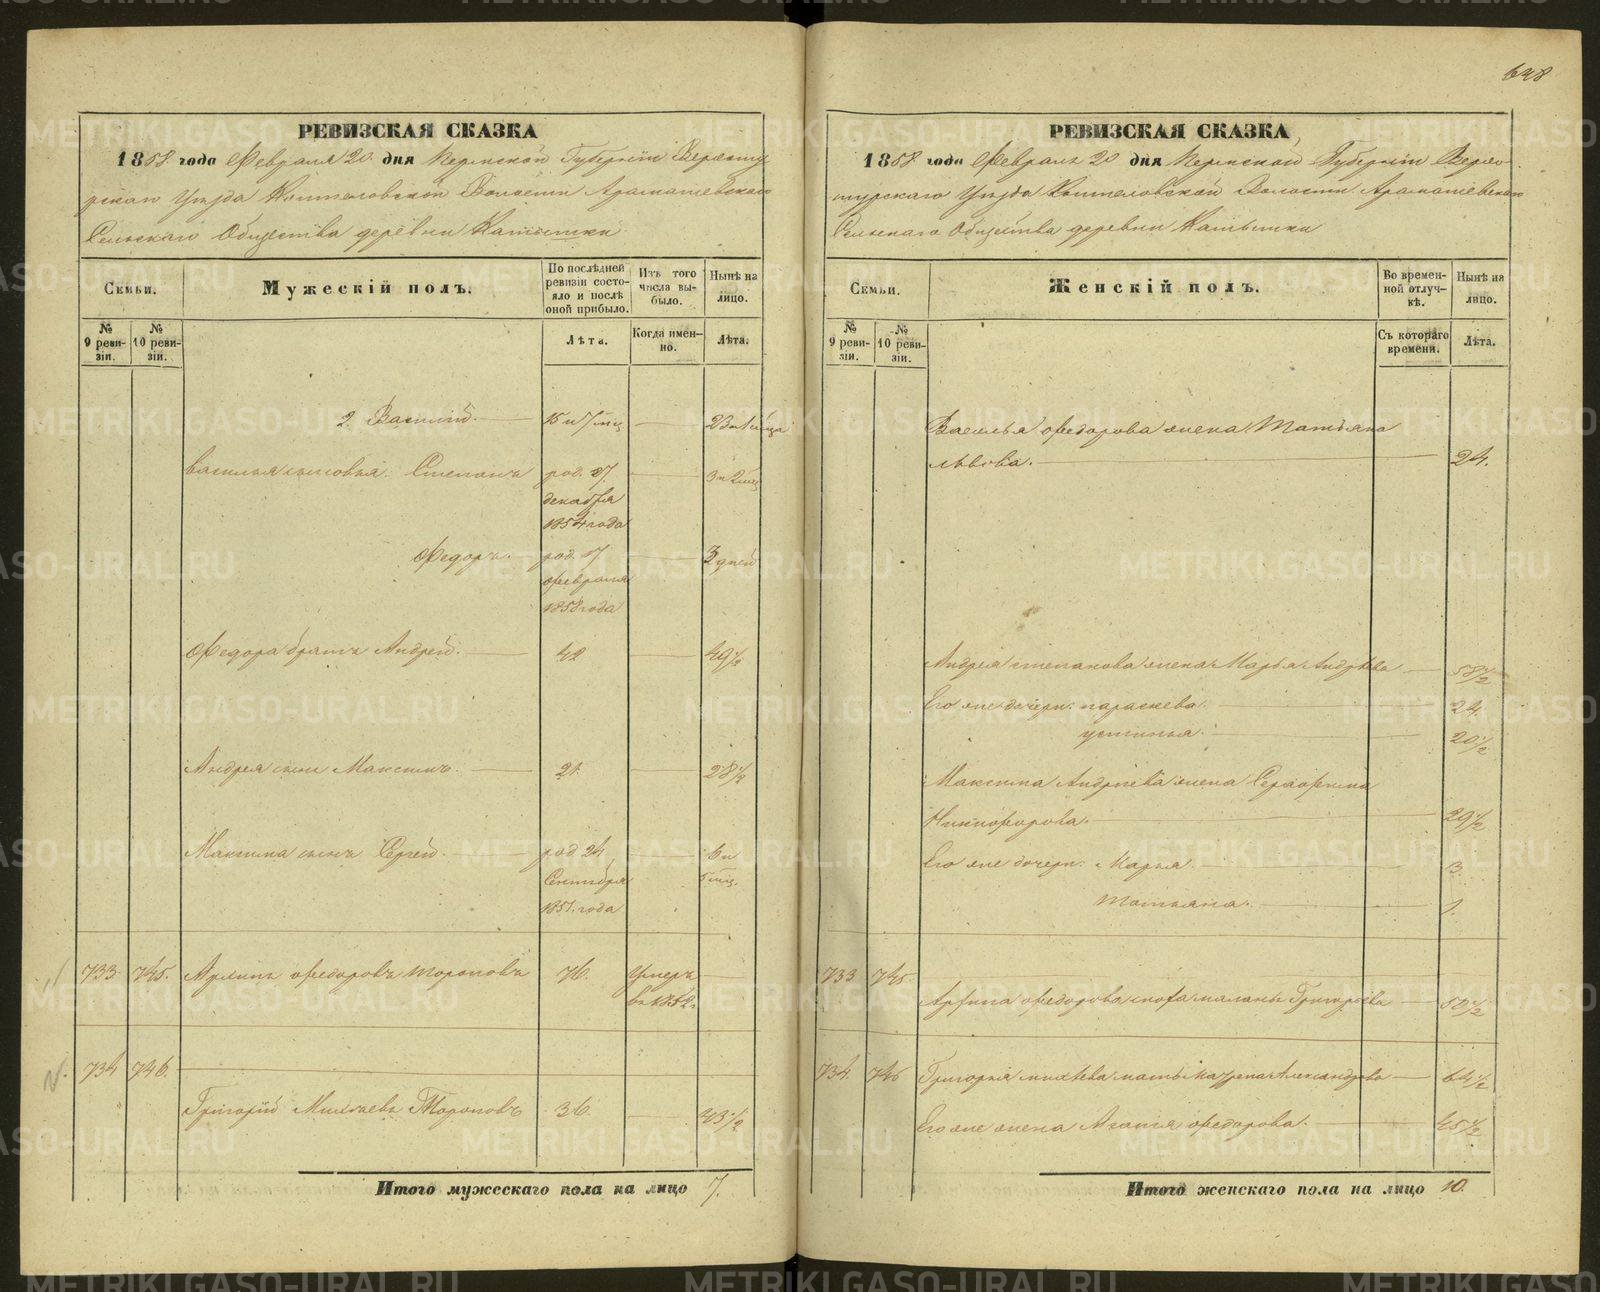 РЕВИЗСКАЯ СКАЗКА
1858 года Февраля 20 дня Пермской Губернiи Верхоту
рскаго Уѣзда Коптеловской Волости Арамашевскаго
Сельскаго Общества деревни Катышки
Семьи.
Мужескiй полъ.
По послѣдней ревизiи состояло и послѣ оной прибыло.
Изъ того числа выбыло.
Нынѣ на лицо.
№ 9 ревизiи.
№ 10 ревизiи.
Лѣта.
Когда именно.
Лѣта.
2. Василiй. 15 и 7 мц
Василья сыновья: Степанъ род. 27 3 и 2 мц
декабря
1854 года
Федоръ. род. 17 3 дней
февраля
1858 года
Федора братъ Андрей. 42 49 1/2
Андрея сынъ Максимъ. 21. 28 1/2
Максима сынъ Сергей. род 24 6 и
Сентября 5 мц.
1851. года
733 745. Федоровъ Тороповъ 76. Умеръ
въ 1852.
734 746.
Григорiй Михѣевъ Тороповъ 36. 43 1/2
Итого мужескаго пола на лицо 7.
648
РЕВИЗСКАЯ СКАЗКА
1858 года Февраля 20 дня Пермской Губернiи Верхо
турскаго Уѣзда Коптеловской Волости Арамашевскаго
Сельскаго Общества деревни Катышки
Семьи.
Женскiй полъ.
Во временной отлучкѣ.
Нынѣ на лицо.
№ 9 ревизiи.
№ 10 ревизiи.
Съ котораго времени.
Лѣта.
Василья Федорова жена Татьяна
Львова. 24.
Андрея Степанова жена Марья Андрѣева 58 1/2
Его же дочери: Параскева. 24.
Устинья. 20 1/2
Максима Андрѣева жена Серафима
Никифорова. 29 1/2
Его же дочери: Марья. 3.
Татьяна. 1.
733 745
Федорова сноха Маланья Григорьева 50 1/2
734. 746 Григорiя Михѣева мать Александрова 64 1/2
Его же жена Агафья Федорова. 45 1/2
Итого женскаго пола на лицо 10.
METRIKI.GASO-URAL.RU